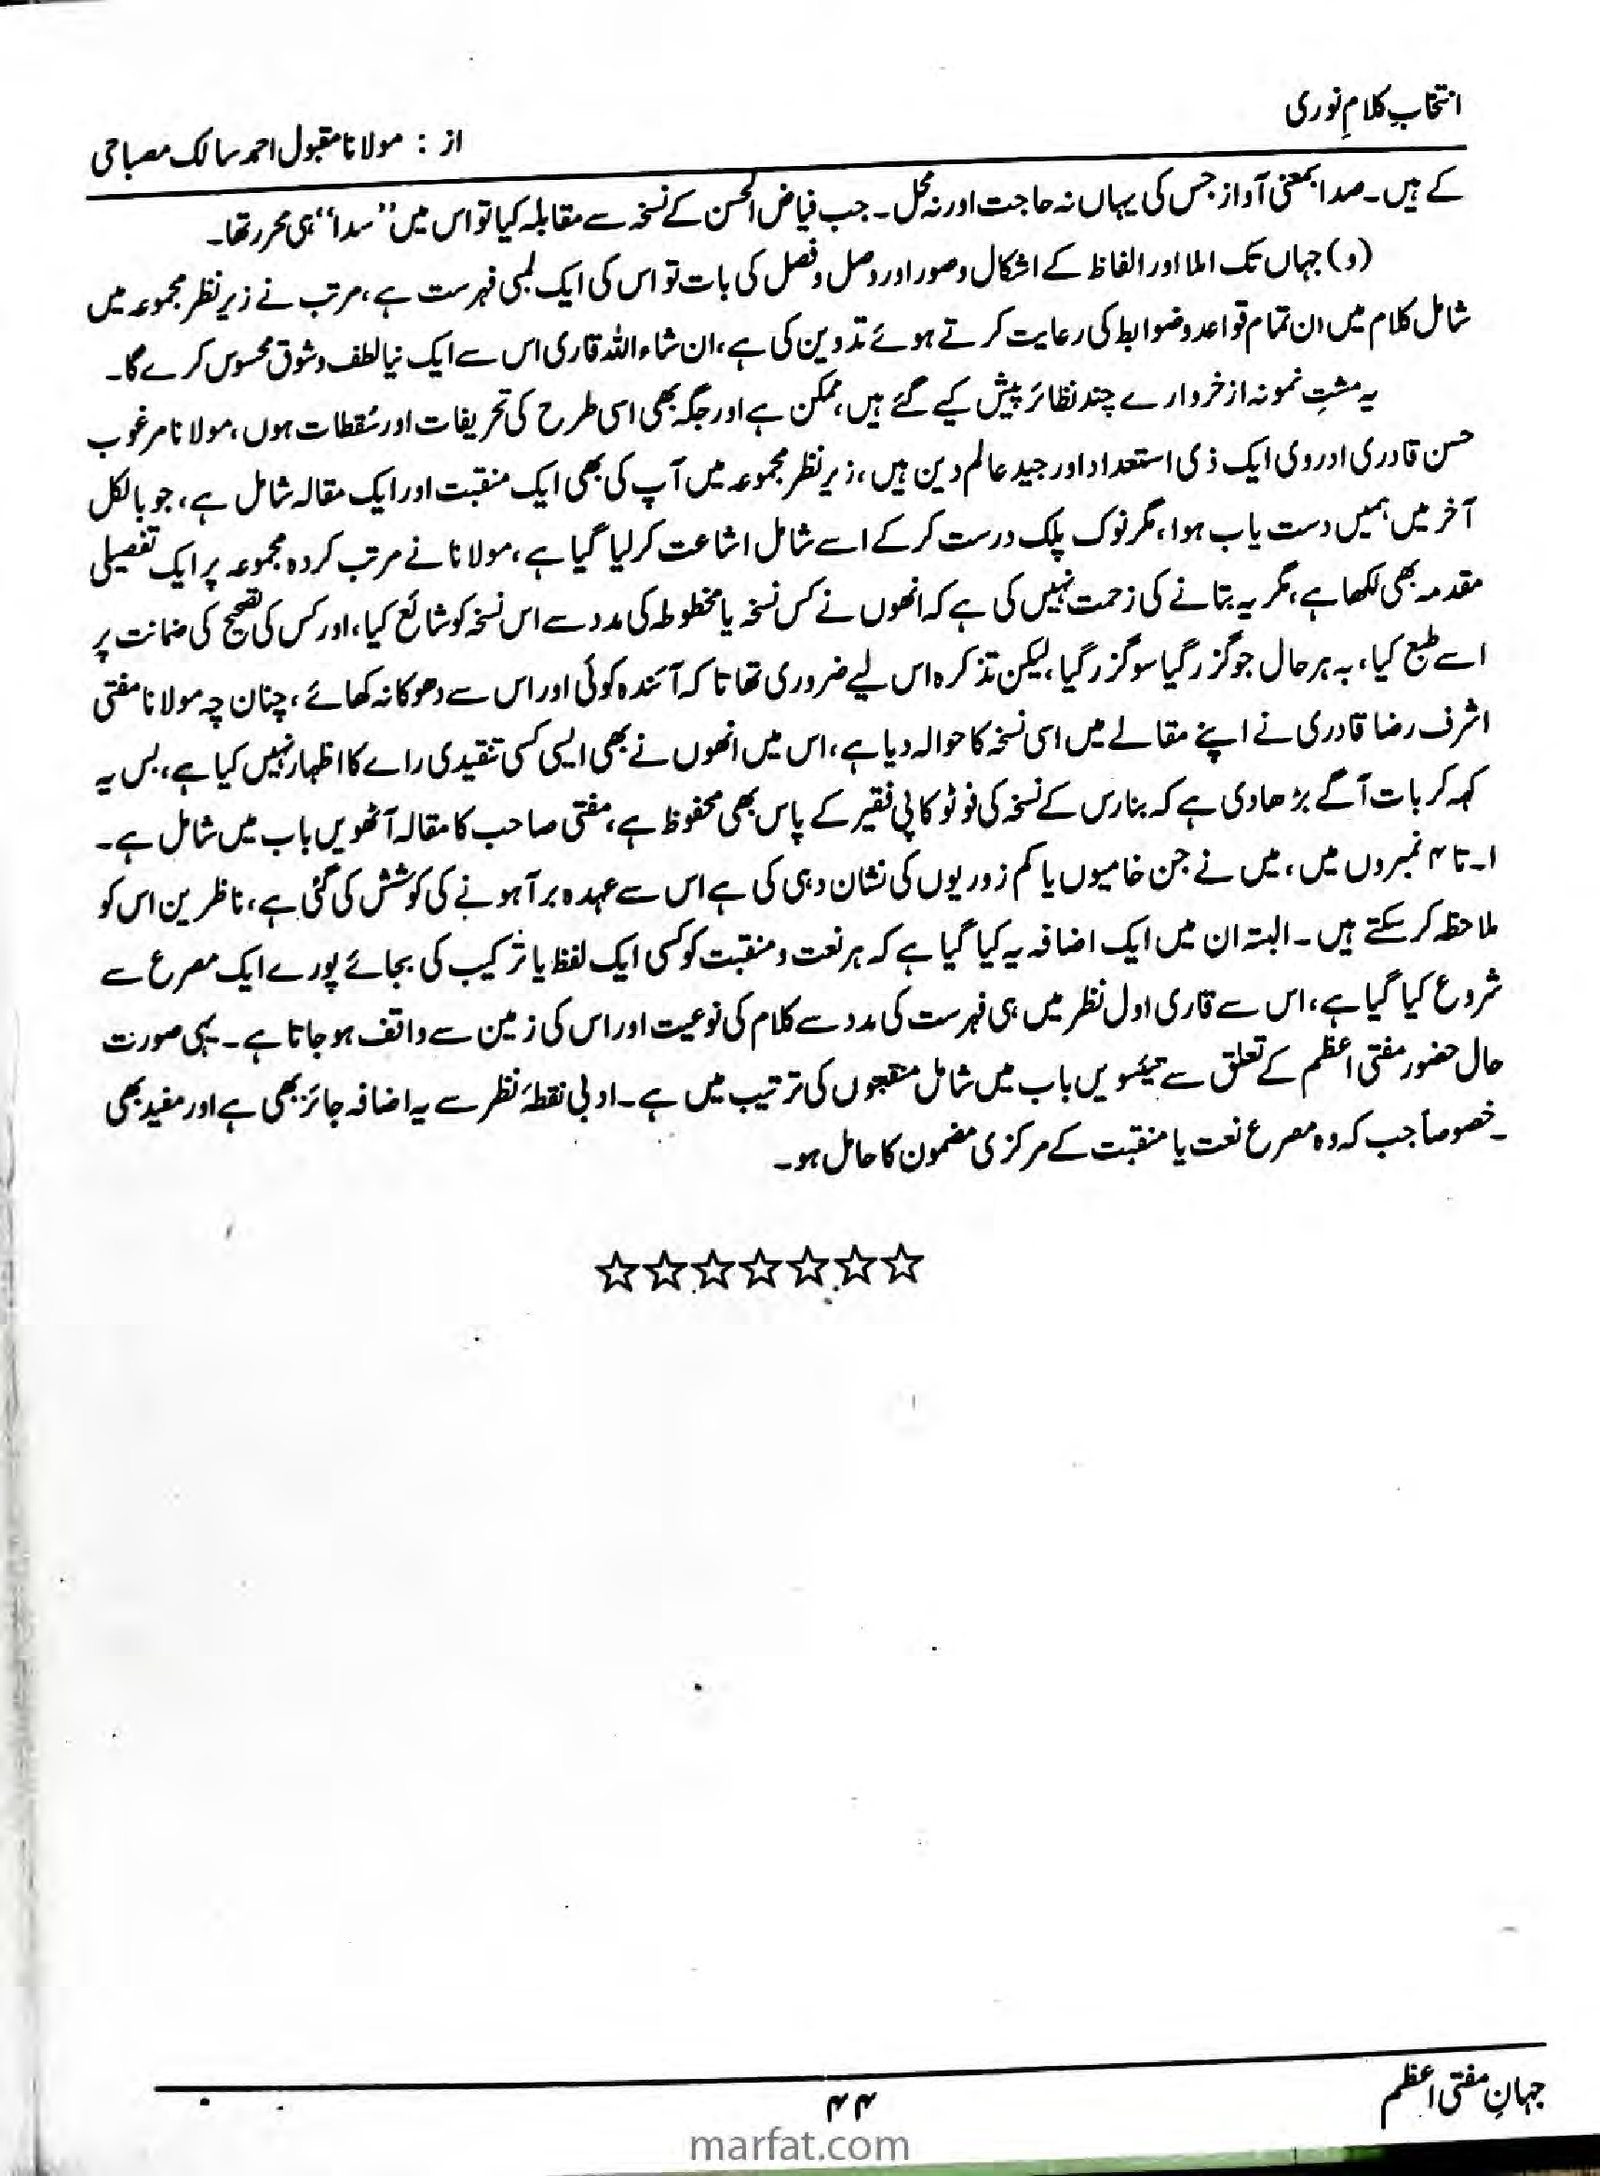 انتخابِ کلامِ نوری
از : مولانا مقبول احمد سالک مصباحی
کے ہیں۔ صدا بمعنی آواز جس کی یہاں نہ حاجت اور نہ محل۔ جب فیاض الحسن کے نسخہ سے مقابلہ کیا تو اس میں ”سدا“ ہی محرر تھا۔
(و) جہاں تک املا اور الفاظ کے اشکال و صور اور وصل و فصل کی بات تو اس کی ایک لمبی فہرست ہے، مرتب نے زیرِ نظر مجموعہ میں
شامل کلام میں ان تمام قواعد و ضوابط کی رعایت کرتے ہوئے تدوین کی ہے، ان شاء اللہ قاری اس سے ایک نیا لطف و شوق محسوس کرے گا۔
یہ مشتِ نمونہ از خروارے چند نظائر پیش کیے گئے ہیں، ممکن ہے اور جگہ بھی اسی طرح کی تحریفات اور سُقطات ہوں، مولانا مرغوب
حسن قادری ادروی ایک ذی استعداد اور جید عالم دین ہیں، زیرِ نظر مجموعہ میں آپ کی بھی ایک منقبت اور ایک مقالہ شامل ہے، جو بالکل
آخر میں ہمیں دست یاب ہوا، مگر نوک پلک درست کر کے اسے شامل اشاعت کر لیا گیا ہے، مولانا نے مرتب کردہ مجموعہ پر ایک تفصیلی
مقدمہ بھی لکھا ہے، مگر یہ بتانے کی زحمت نہیں کی ہے کہ انھوں نے کس نسخہ یا مخطوطہ کی مدد سے اس نسخہ کو شائع کیا، اور کس کی تصحیح کی ضمانت پر
اسے طبع کیا، بہ ہر حال جو گزر گیا سو گزر گیا، لیکن تذکرہ اس لیے ضروری تھا تا کہ آئندہ کوئی اور اس سے دھوکا نہ کھائے، چنان چہ مولانا مفتی
اشرف رضا قادری نے اپنے مقالے میں اسی نسخہ کا حوالہ دیا ہے، اس میں انھوں نے بھی ایسی کسی تنقیدی راے کا اظہار نہیں کیا ہے، بس یہ
کہہ کر بات آگے بڑھا دی ہے کہ بنارس کے نسخہ کی فوٹو کاپی فقیر کے پاس بھی محفوظ ہے، مفتی صاحب کا مقالہ آٹھویں باب میں شامل ہے۔
۱۔ تا ۴ نمبروں میں، میں نے جن خامیوں یا کم زوریوں کی نشان دہی کی ہے اس سے عہدہ برآ ہونے کی کوشش کی گئی ہے، ناظرین اس کو
ملاحظہ کر سکتے ہیں۔ البتہ ان میں ایک اضافہ یہ کیا گیا ہے کہ ہر نعت و منقبت کو کسی ایک لفظ یا ترکیب کی بجائے پورے ایک مصرع سے
شروع کیا گیا ہے، اس سے قاری اول نظر میں ہی فہرست کی مدد سے کلام کی نوعیت اور اس کی زمین سے واقف ہو جاتا ہے۔ یہی صورت
حال حضور مفتی اعظم کے تعلق سے تیئسویں باب میں شامل منقبتوں کی ترتیب میں ہے۔ ادبی نقطۂ نظر سے یہ اضافہ جائز بھی ہے اور مفید بھی
۔ خصوصاً جب کہ وہ مصرع نعت یا منقبت کے مرکزی مضمون کا حامل ہو۔
☆☆☆☆☆☆☆
جہانِ مفتی اعظم
۴۴
marfat.com